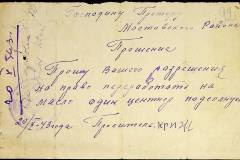 Господину
Мостовского Района
Прошение
Прошу Вашего разрешения
на право переработать на
масло один центнер подсолнух
20/V-43 года Проситель
20 V 943г.